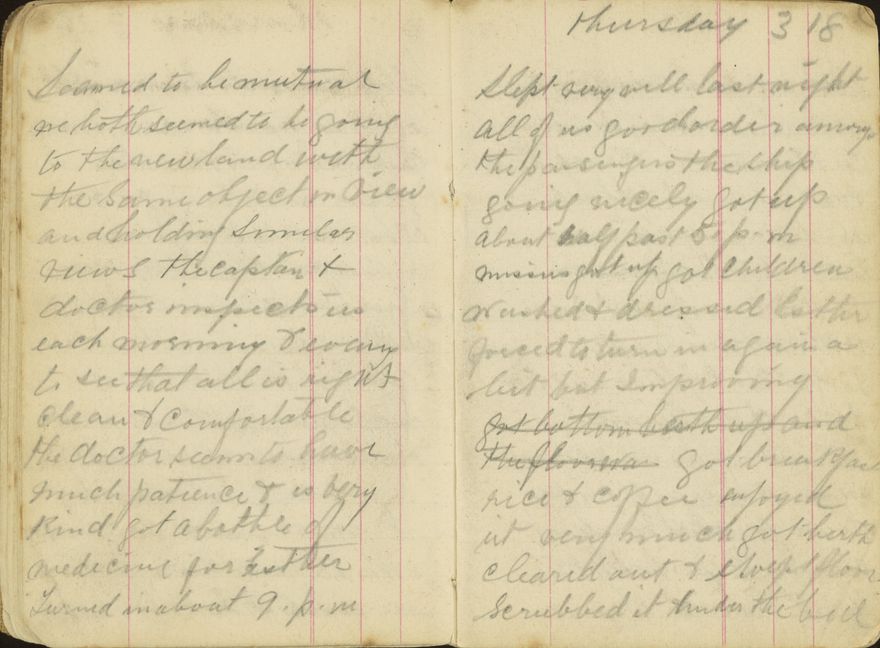 Seamed to be mutual
we both seemed to be going
to the new land with
the same object in view
and holding similar
views the captan &
doctor inspects us
each morning & evening
to see that all is right
clean & comfortable
the doctor seems to have
much patience & is very
kind got a bottle of
medicine for Esther
turned in about 9. p. m
thursday 3 18
Slept very well last night
all of us good order amongs
the passengers the ship
going nicely got up
about half past 5 p. m
missis got up got children
washed & dressed Esther
forced to turn in again a
bit but Improving
got bottom berth up and
the floor got breakfast
rice & coffee enjoyed
it very much got berth
cleared out & swept floor
scrubbed it & under the bed